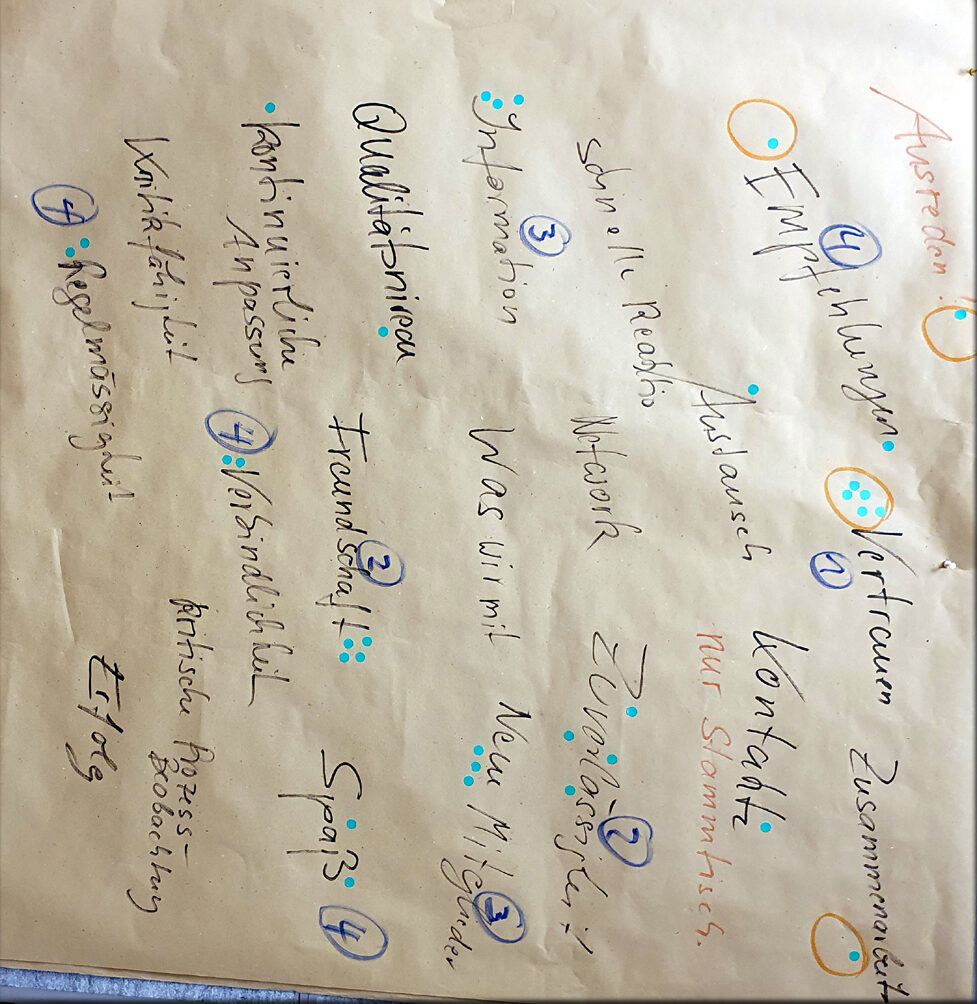 Ausreden
4
Empfehlungen
Vertrauen
1
Zusammenarbeit
Kontakte
Austausch
nur Stammtisch.
schnelle Reaktio
Network
Zuverlässigkeit
2
Information
3
Was wir mit
Neue Mitglieder
3
Qualitätsniveau
Freundschaft
2
Spaß
4
kontinuierliche
Anpassung
4
Verbindlichkeit
Kritikfähigkeit
kritische Prozess-
beobachtung
4
Regelmässigkeit
Erfolg